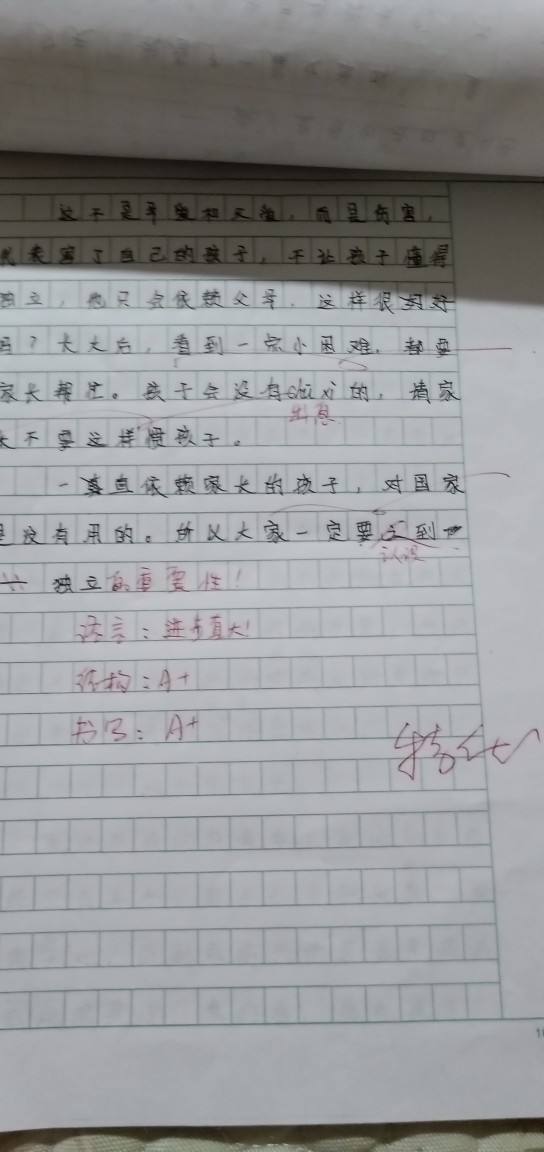 这不是寻爱和关注，而是伤害，
害了自己的孩子，不让孩子懂得
独立，他只会依赖父母．这样很好
吗？长大后，看到一点小困难，都要
家长帮忙。孩子会没有chū xi的，请家
出息
长不要这样惯孩子。
一直依赖家长的孩子，对国家
是没有用的。所以大家一定要到
认识
独立的重要性！
语言：进步真大！
结构：A+
书写：A+